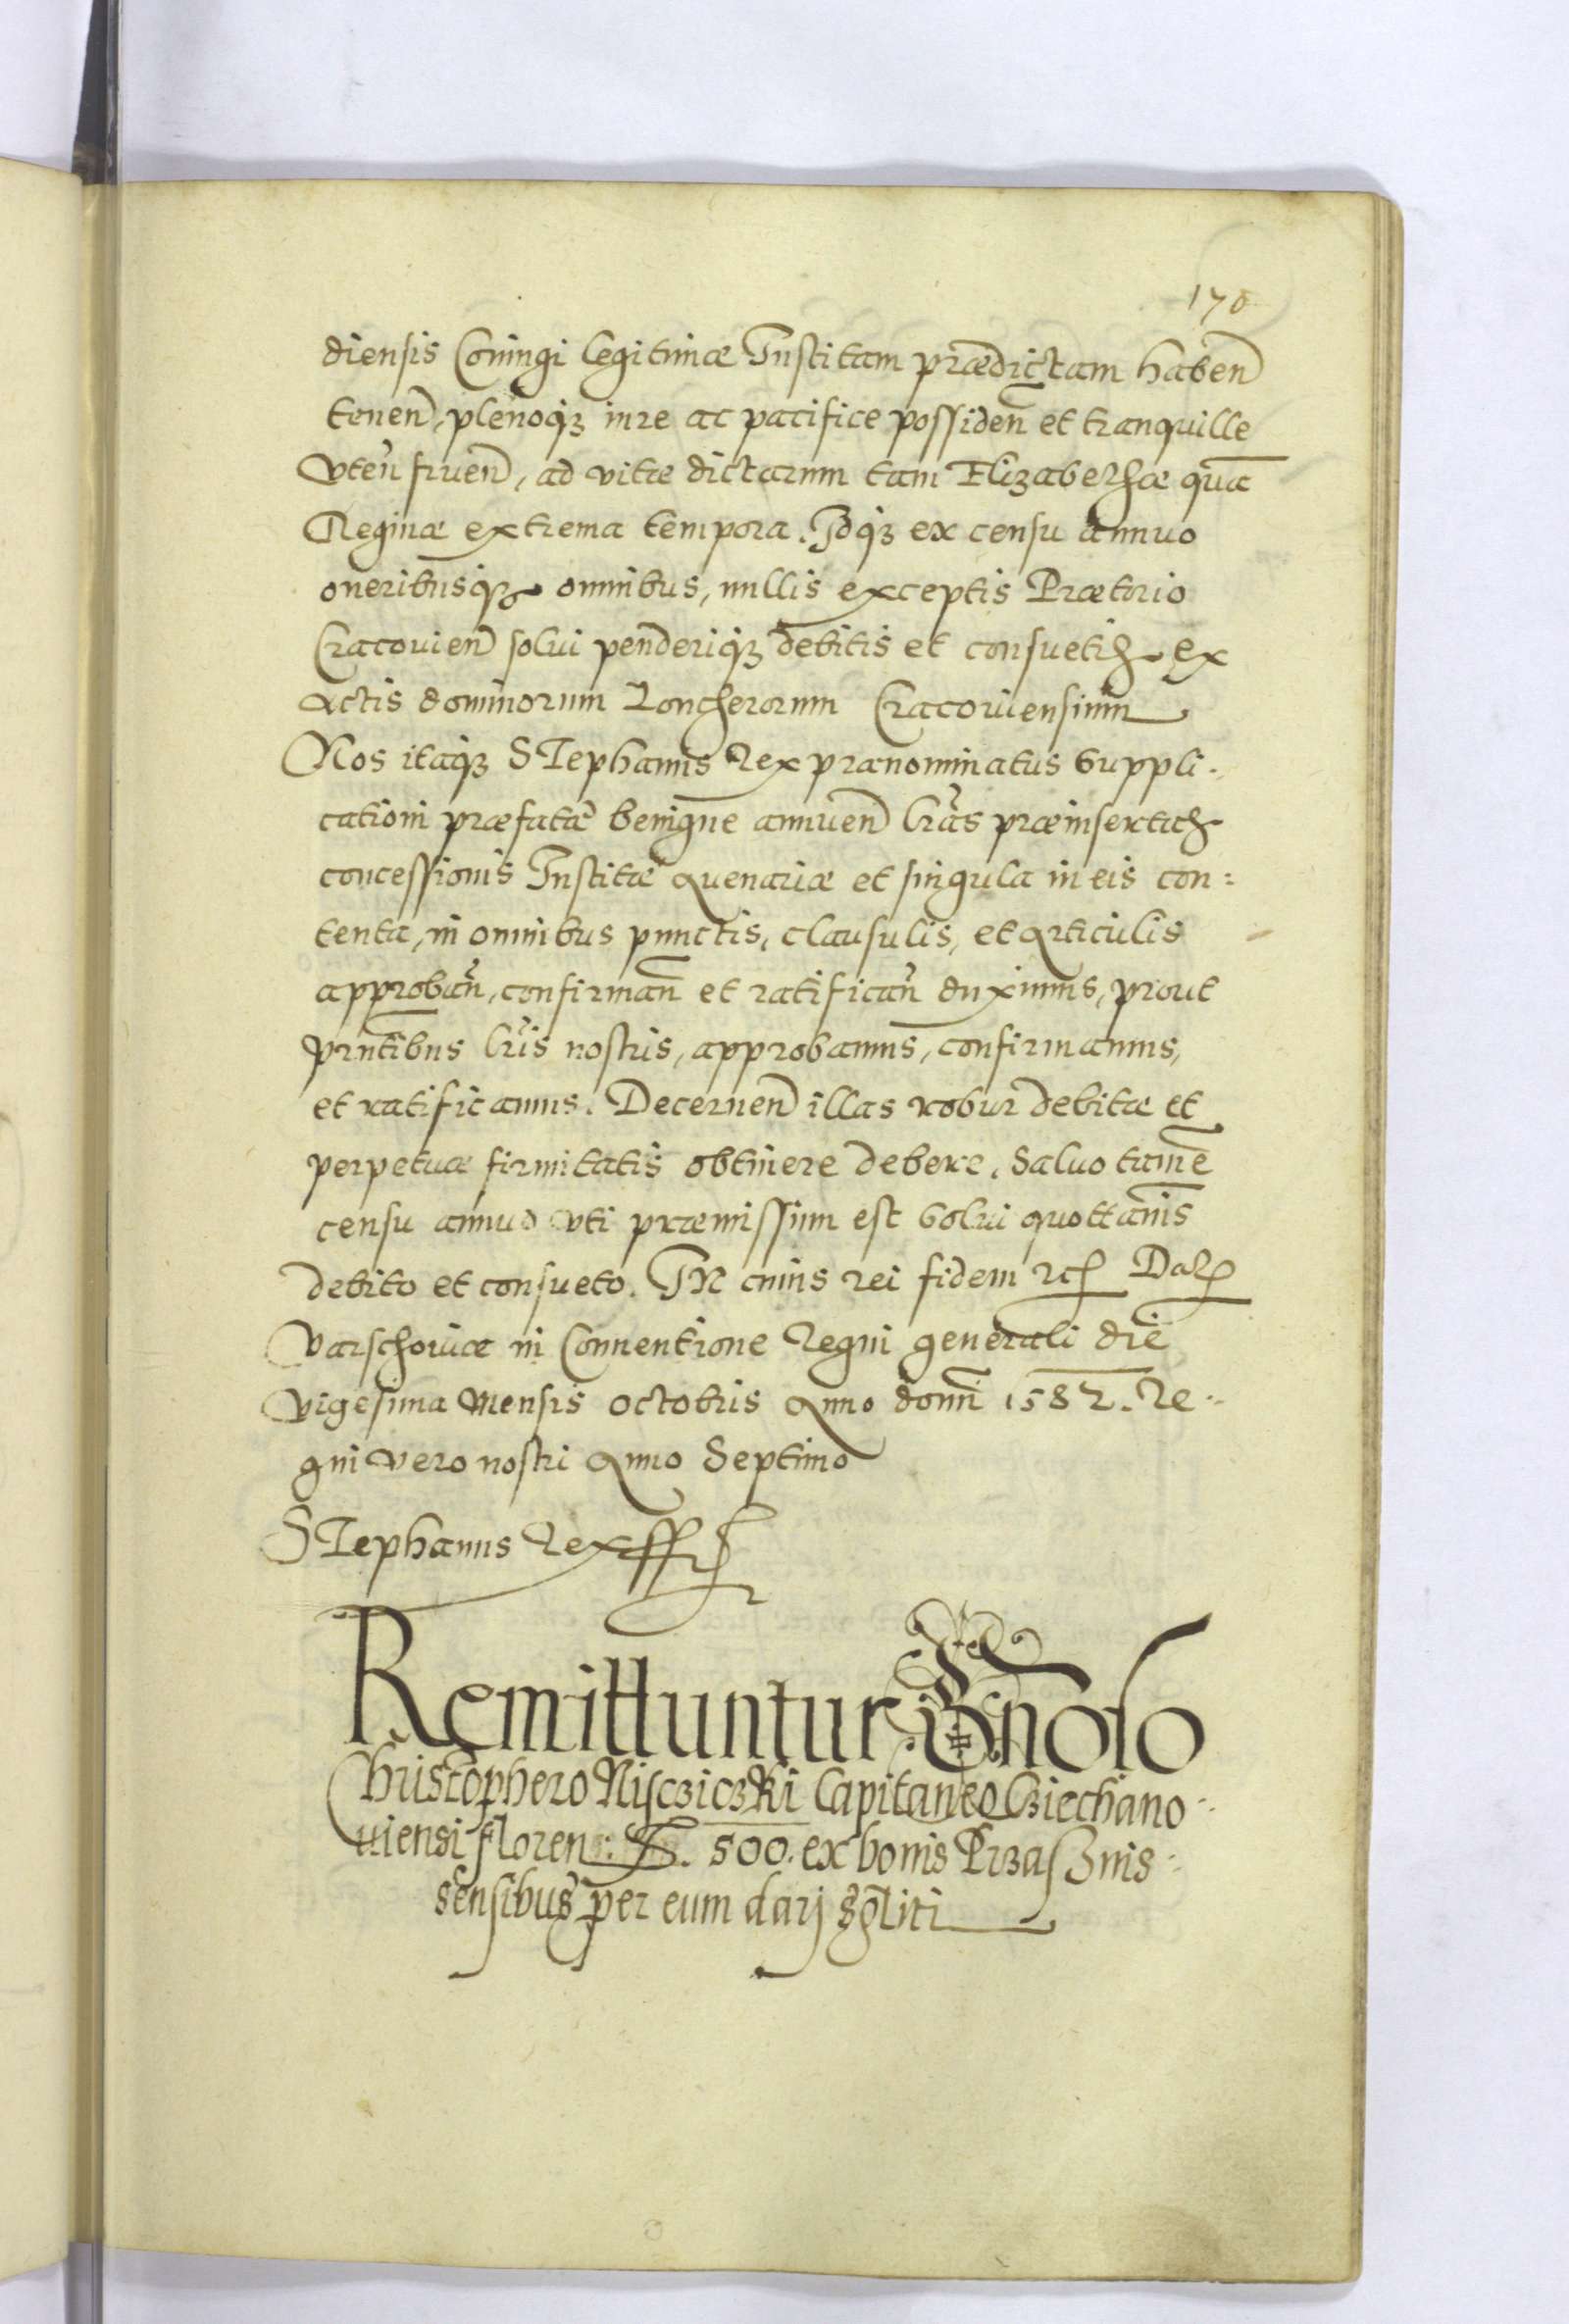 170
diensis Coniugi legitimæ Institam prædictam haben̄
tenen̄, plenoqꝫ iure ac pacifice possiden̄ et tranquille
vten̄ fruen̄, ad vitæ dictarum tam Elizabethæ quā
Reginæ extrema tempora. Idqꝫ ex censu annuo
oneribusqꝫ omnibus, nullis exceptis Prætorio
Cracouien̄ solui penderiqꝫ debitis et consuetis ex
Actis dominorum Loncherorum Cracouiensium
Nos itaqꝫ STephanus Rex prænominatus Suppli-
cationi præfatæ benigne annuen̄ Lrãs præinsertas
concessionis Institæ Auenariæ et singula in eis con=
tenta, in omnibus punctis, clausulis, et Articulis
approban̄, confirman̄ et ratifican̄ duximus, prout
prntibus Lrĩs nostris, approbamus, confirmamus,
et ratificamus. Decernen̄ illas robur debitæ et
perpetuæ firmitatis obtinere debere. Saluo tamē
censu annuo vti præmissum est Solui quottānis
debito et consueto. IN cuius rei fidem etc̃ Datt
Varschouiæ in Conuentione Regni generali die
vigesima mensis Octobris Anno domī 1582. Re-
gni vero nostri Anno Septimo
STephanus Rex sst
Remittuntur Gnoso
Christophero Niscziczki Capitaneo Cziechano-
uiensi floren: 500. ex bonis Przasznis-
sensibus per eum darj sȏliti